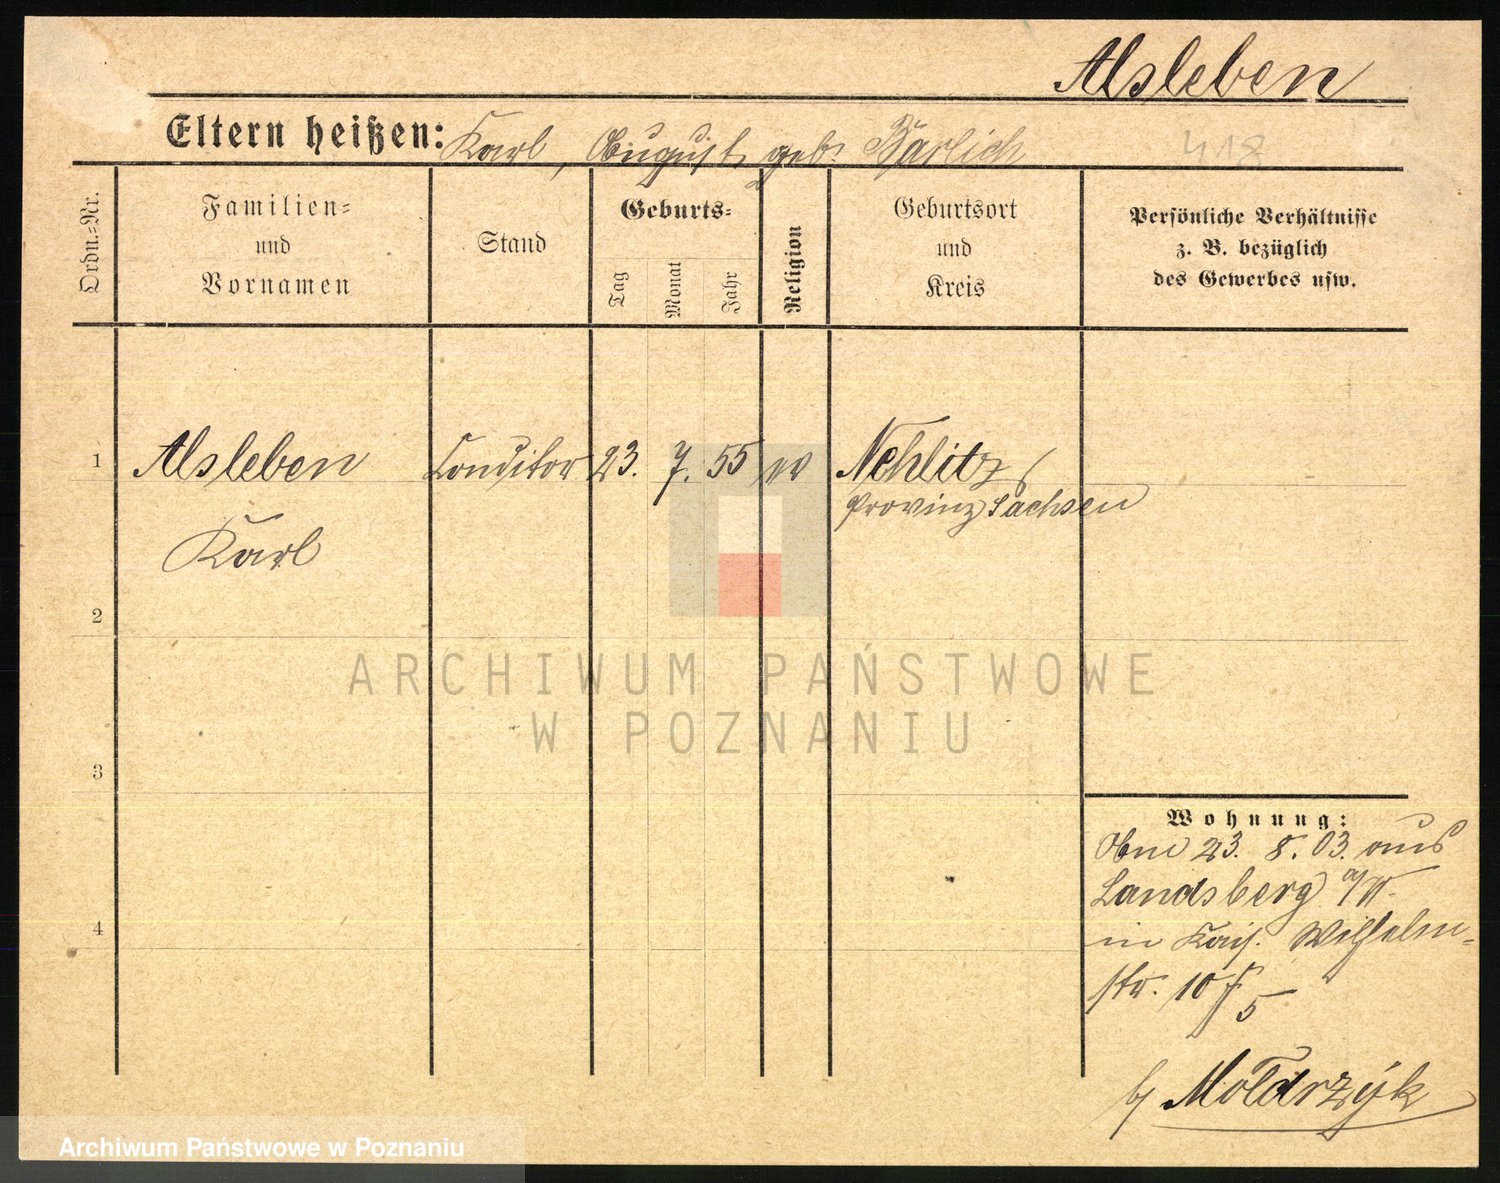 Alsleben
Eltern heißen: Karl, August, geb. Bärlich
418
Ordn.=Nr.
Familien=
und
Vornamen
Stand
Geburts=
Tag
Monat
Jahr
Religion
Geburtsort
und
Kreis
Persönliche Verhältnisse
z. B. bezüglich
des Gewerbes usw.
1 Alsleben Conditor 23. 7. 55 Nehlitz
Provinz Sachsen
Karl
2
ARCHIWUM PAŃSTWOWE
W POZNANIU
3
Wohnung:
23. 8. 03. aus
Landsberg a/W.
4
in Kais. Wilhelm-
str. 10
5
b/ Moldrzyk
Archiwum Państwowe w Poznaniu